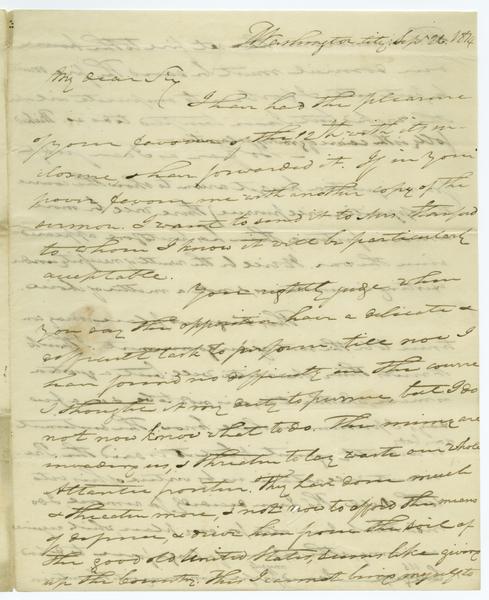 Washington City Sept 26. 1814
My dear Sir
I have had the pleasure
of your favour of the 12th with its in
closure, I have forwarded it. If in your
power favour me with another copy of the
sermon. I want to send it to Mrs.
to whom I know it will be particularly
acceptable.
You rightly judge when
you say the opposition have a delicate &
difficult task to perform till now I
have found no difficulty in the course
I thought it my duty to pursue, but I do
not now know what to do. The enemy are
invading us, & threaten to lay waste our whole
Atlantic frontier. They have done much
& threaten more, & not now to afford the means
of defence, & drive him from the soil of
the good old United States, seems like giving
up the Country. This I cannot bring myself to